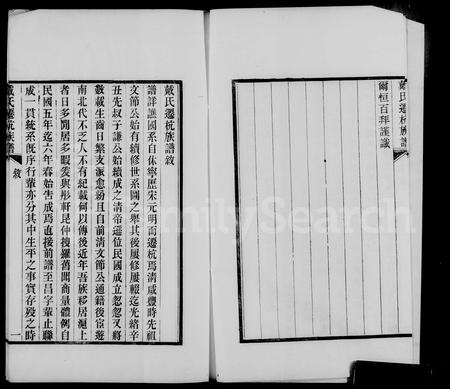 戴氏遷杭族譜
爾恒百拜謹識
戴氏遷杭族譜敘
譜詳進國系自休寧歷宋元明而遷杭焉清咸豐時先祖
文節公始有續修世系圖之舉其後屢修屢輟迄光緒辛
丑先叔子謙公始續成之清帝遜位民國成立忽忽又將
數載生齒日繁支派愈紛且自前清文節公通籍後宦遊
南北代不乏人不有紀載何以傳後近年吾族移居滬上
者日多閒居多暇爰與彤軒昆仲搜羅舊聞商量體例自
民國五年迄六年春始告成焉直接前譜至昌字輩止聯
成一貫統系旣序行輩亦分其中生平之事實存歿之時
戴氏遷杭族譜
敘
一
FamilySearch